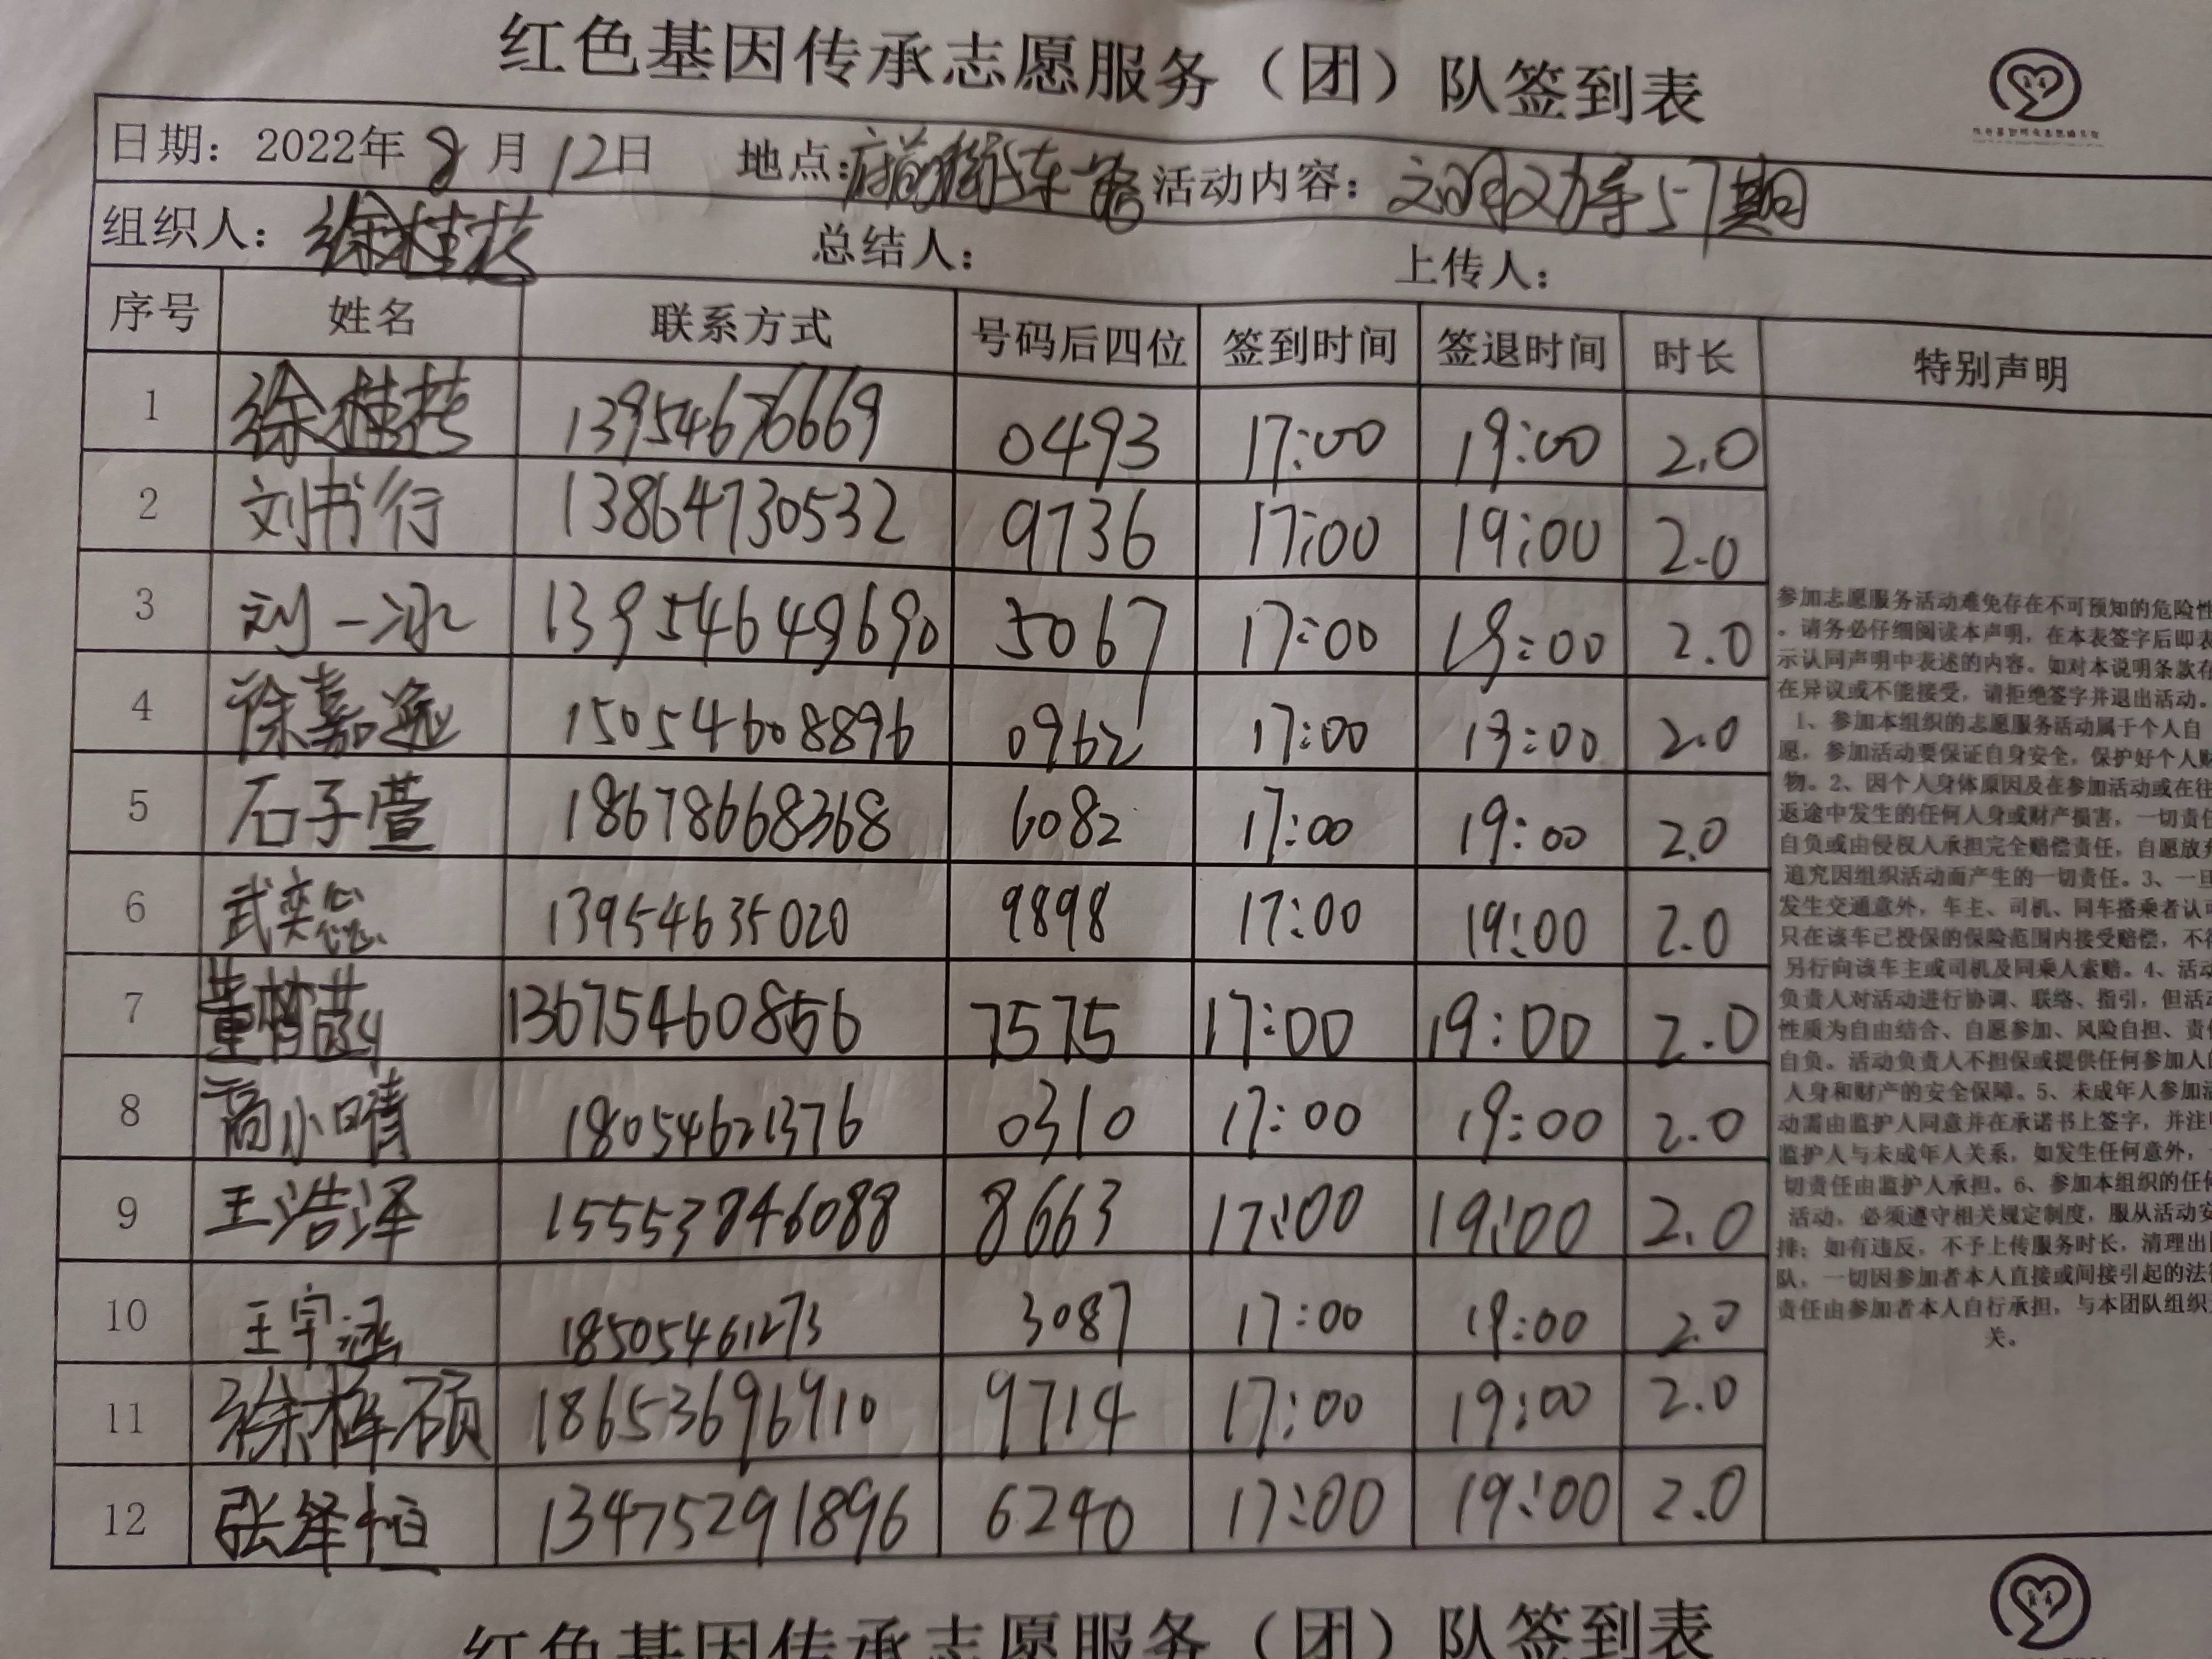 红色基因传承志愿服务（团）队签到表
日期：2022年 8 月 12日 地点：府前街东一路 活动内容：文明劝导57期
组织人：徐桂花 总结人： 上传人：
序号 姓名 联系方式 号码后四位 签到时间 签退时间 时长 特别声明
1 徐桂花 13954676669 0493 17:00 19:00 2.0
2 刘书行 13864730532 9736 17:00 19:00 2.0
3 刘一冰 13954649690 5067 17:00 19:00 2.0
4 徐嘉遥 15054608896 0962 17:00 19:00 2.0
5 石子萱 18678668368 6082 17:00 19:00 2.0
6 武奕 13954635020 9898 17:00 19:00 2.0
7 董 13675460856 7575 17:00 19:00 2.0
8 商小晴 18054621376 0310 17:00 19:00 2.0
9 王浩泽 15553846088 8663 17:00 19:00 2.0
10 王宇涵 18505461273 3087 17:00 19:00 2.0
11 徐梓硕 18653696910 9714 17:00 19:00 2.0
12 张绎恒 13475291896 6240 17:00 19:00 2.0
参加志愿服务活动难免存在不可预知的危险性
。请务必仔细阅读本声明，在本表签字后即表
示认同声明中表述的内容。如对本说明条款存
在异议或不能接受，请拒绝签字并退出活动。
1、参加本组织的志愿服务活动属于个人自
愿，参加活动要保证自身安全，保护好个人财
物。2、因个人身体原因及在参加活动或在往
返途中发生的任何人身或财产损害，一切责任
自负或由侵权人承担完全赔偿责任，自愿放弃
追究因组织活动而产生的一切责任。3、一旦
发生交通意外，车主、司机、同车搭乘者认可
只在该车已投保的保险范围内接受赔偿，不得
另行向该车主或司机及同乘人索赔。4、活动
负责人对活动进行协调、联络、指引，但活动
性质为自由结合、自愿参加、风险自担、责任
自负。活动负责人不担保或提供任何参加人的
人身和财产的安全保障。5、未成年人参加活
动需由监护人同意并在承诺书上签字，并注明
监护人与未成年人关系，如发生任何意外，一
切责任由监护人承担。6、参加本组织的任何
活动，必须遵守相关规定制度，服从活动安
排；如有违反，不予上传服务时长，清理出团
队，一切因参加者本人直接或间接引起的法律
责任由参加者本人自行承担，与本团队组织无
关。
红色基因传承志愿服务（团）队签到表